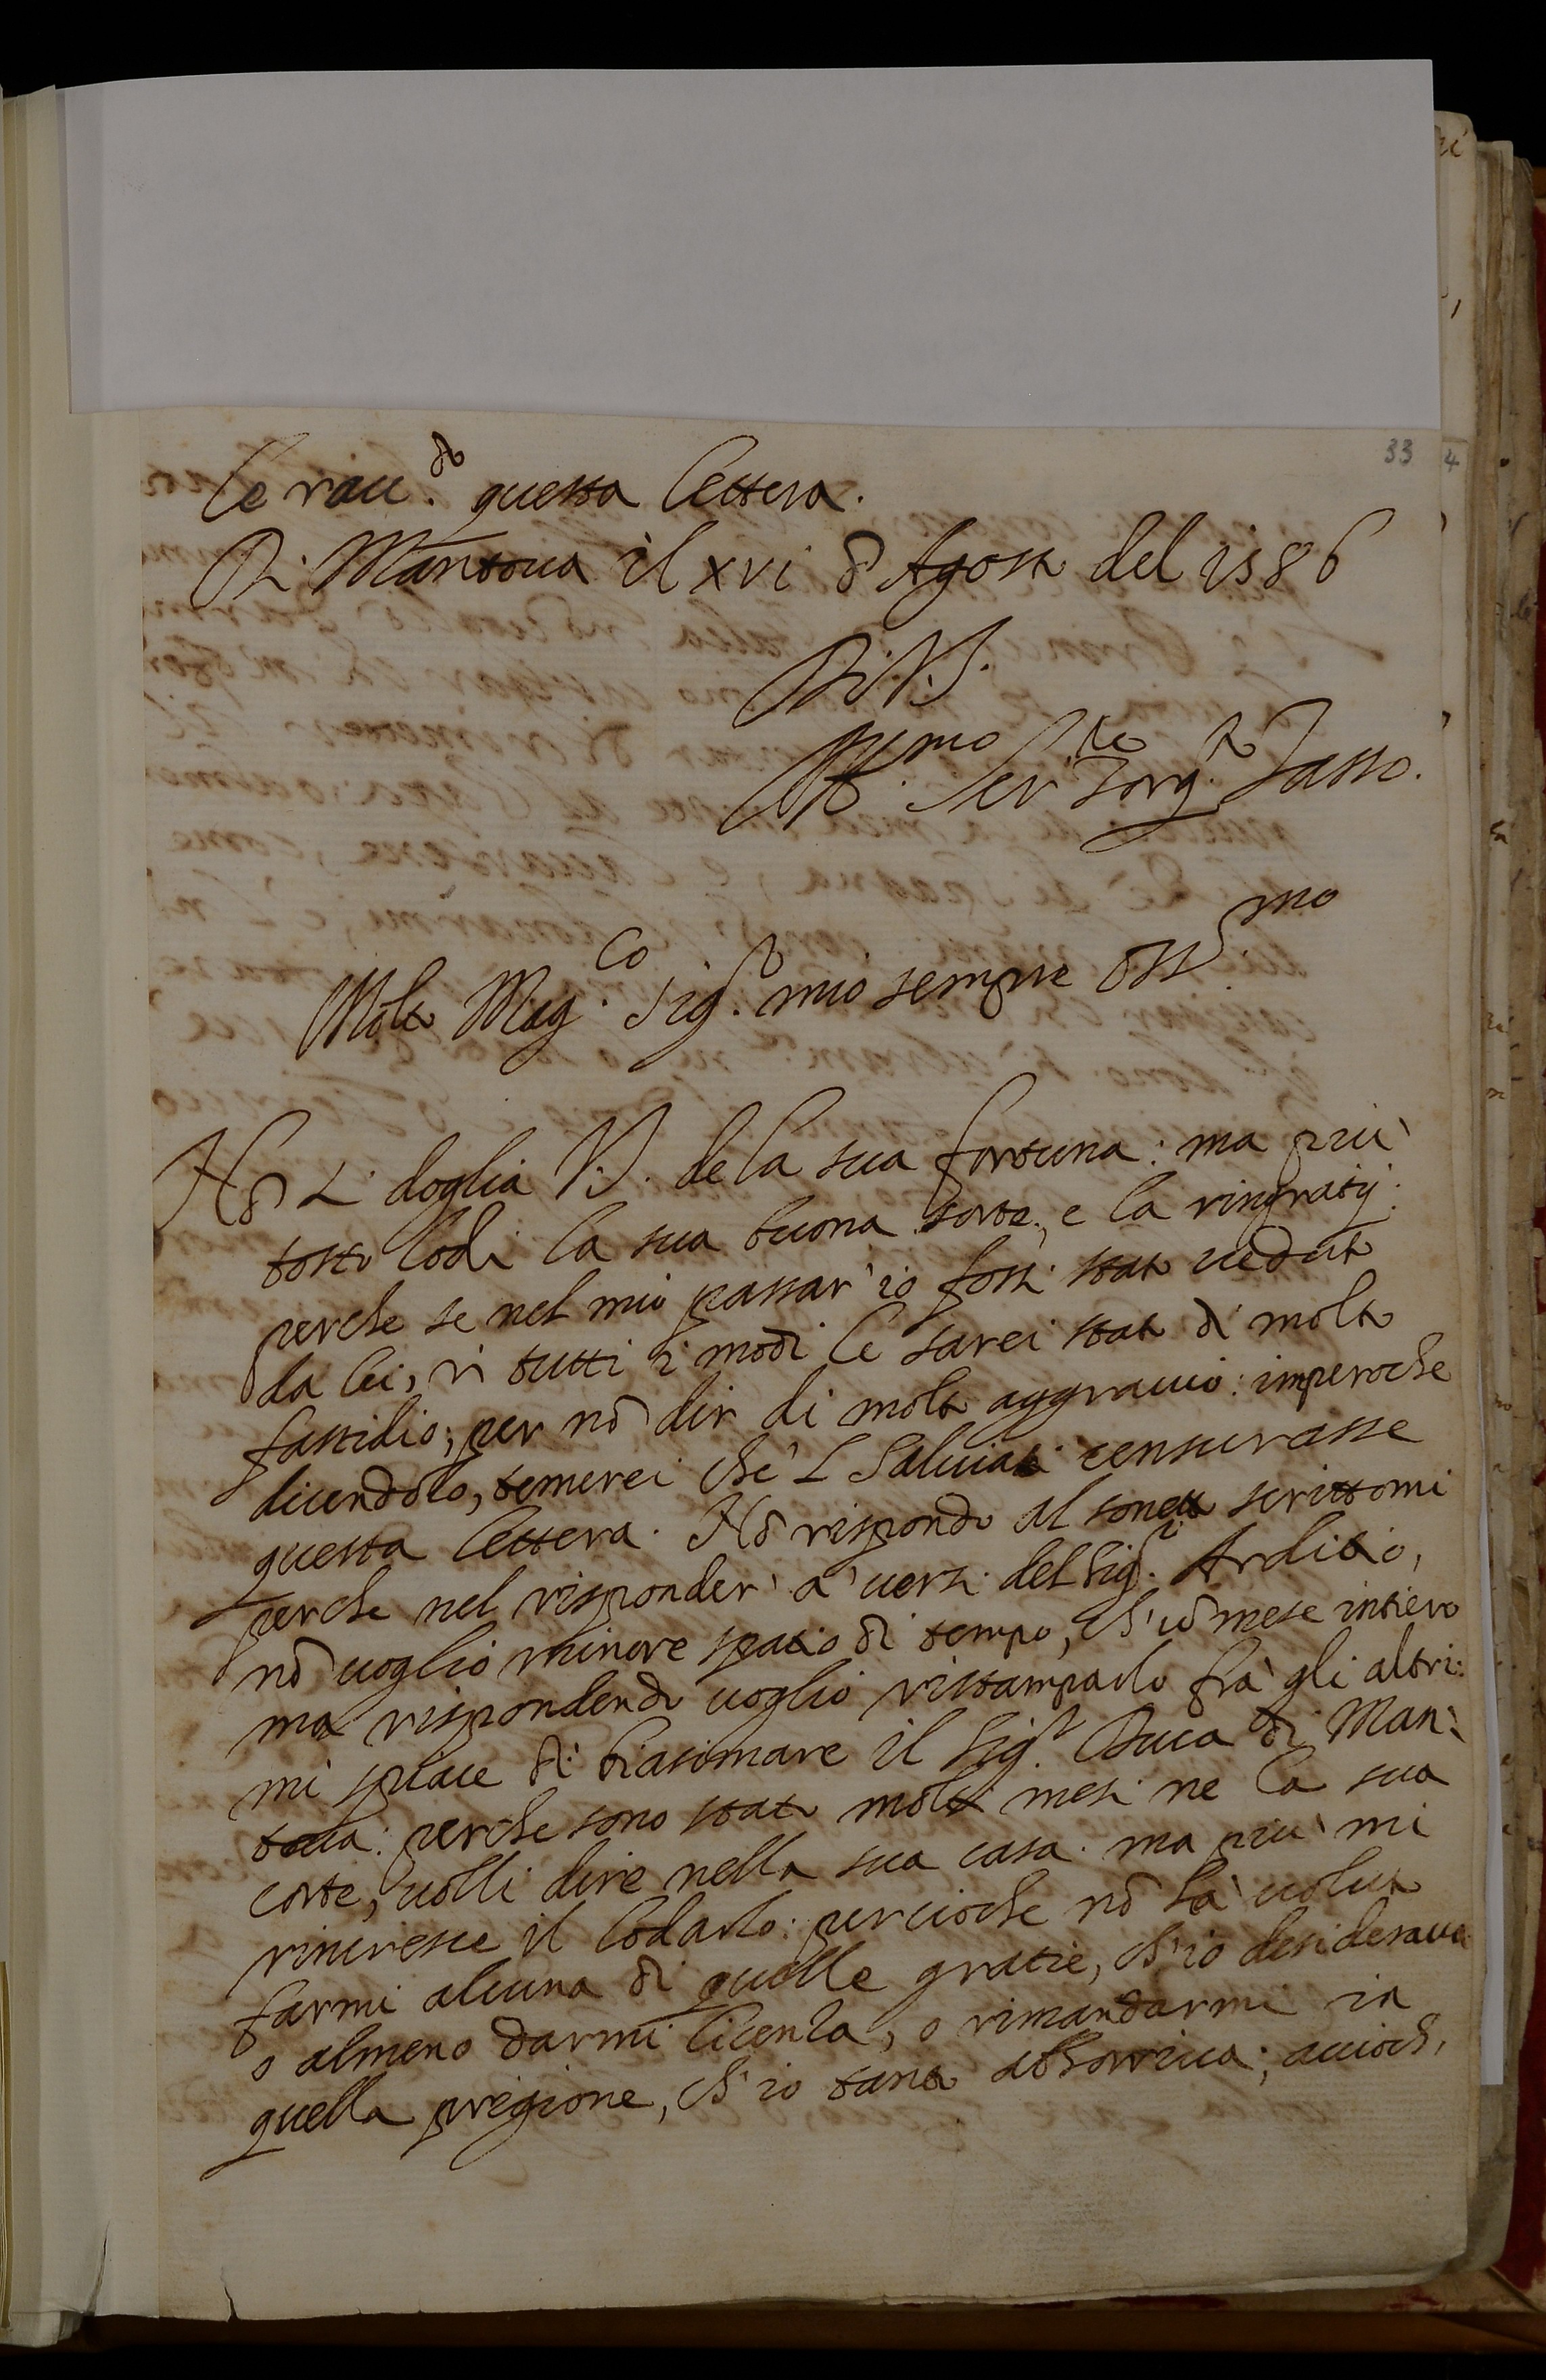 33 4
le racc.do questa lettera.
Di Mantova il xvi d' Agosto del 1586
Di V.S.
Aff.mo Ser.re Torq.to Tasso.
Molto Mag.co Sig.r mio sempre oss.mo
Nõ si doglia V.S. de la sua fortuna: ma più
tosto lodi la sua buona sorte, e la ringratij:
perche se nel mio passar' io fossi stato veduto
da lei, ĩ tutti i modi le sarei stato di molto
fastidio; per nõ dir di molto aggravio: imperoche
dicendolo, temerei che 'l Salviati censurasse
questa lettera. Nõ rispondo al sonetto scrittomi
perche nel risponder' a' versi del Sig.r Arditio,
nõ voglio minore spatio di tempo, ch'ũ mese intiero
ma rispondendo voglio ristamparlo frà gli altri:
mi spiace di biasimare il Sig.r Duca di Man-
tova: perche sono stato molti mesi ne la sua
corte, volli dire nella sua casa. ma più mi
rincresce il lodarlo: percioche nõ hà voluto
farmi alcuna di quelle gratie, ch'io desiderava
o almeno darmi licenza, o rimandarmi in
quella prigione, ch'io tanto abhorriva; accioch,